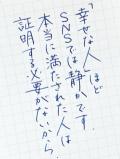 「幸せな人ほど
SNSでは静かです。
本当に満たされた人は
証明する必要がないから。